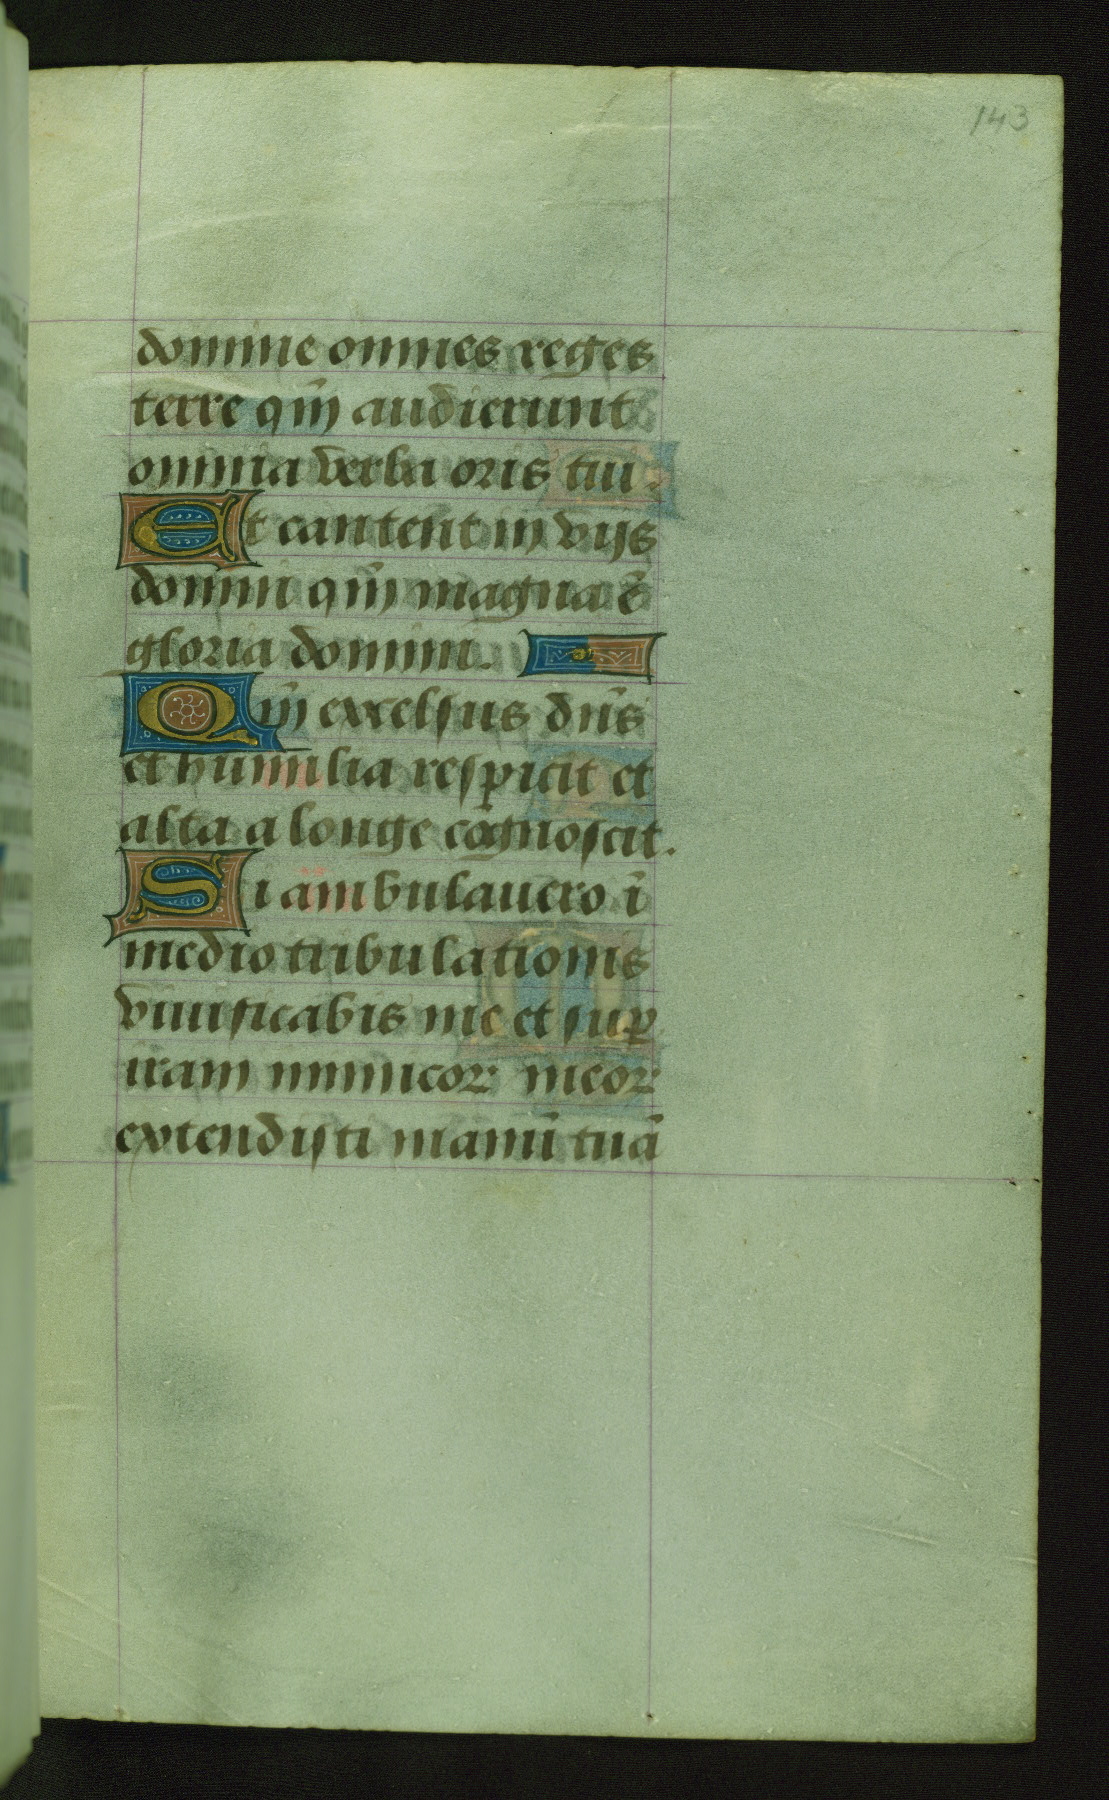 143
domine omnes reges
terre qm̄ audierunt
omnia verba oris tui.
Et cantent in vijs
domini qm̄ magna ē
gloria domini.
Qm̄ excelsus dn̄s
et humilia respicit et
alta a longe cognoscit.
Si ambulauero ī
medio tribulationis
viuificabis me et suꝑ
iram inimicoꝝ meoꝝ
extendisti manū tuā